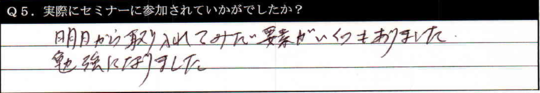 Q5. 実際にセミナーに参加されていかがでしたか？
明日から取り入れてみたい要素がいくつもありました.
勉強になりました